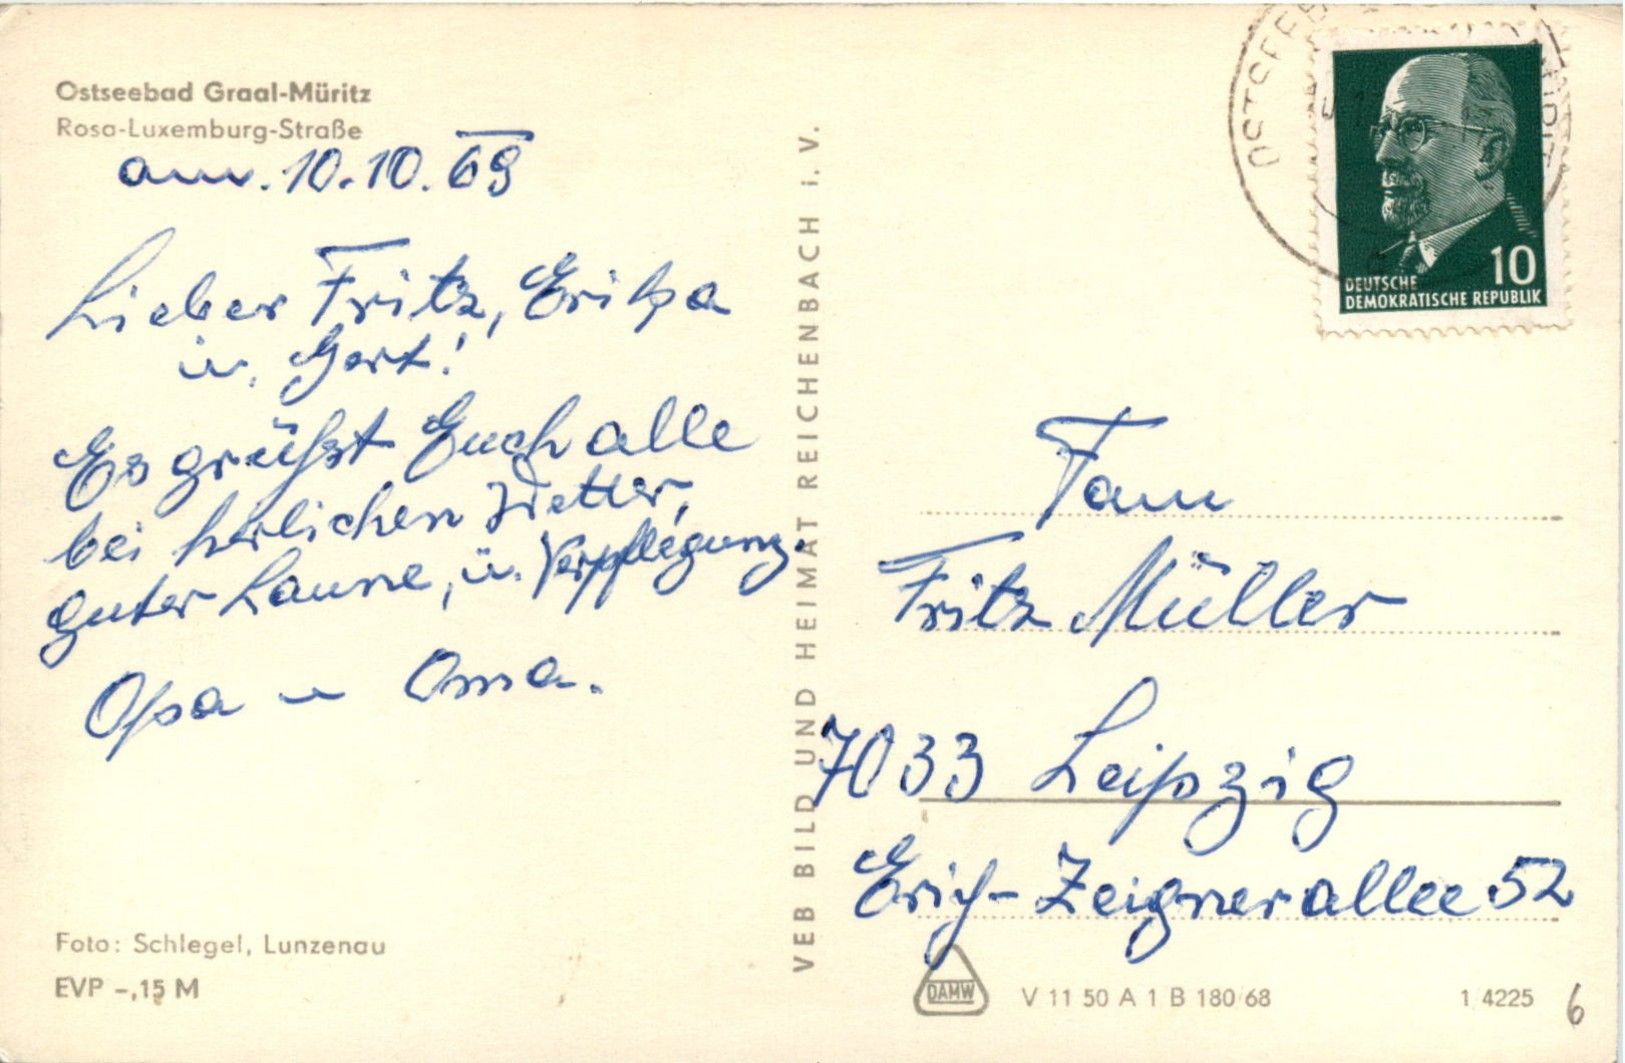 Ostseebad Graal-Müritz
Rosa-Luxemburg-Straße
am. 10.10.69
Lieber Fritz, Erika
u. Gert!
Es grüßt Euch alle
bei herlichen Wetter,
guter Laune, u. Verpflegung.
Opa u Oma.
Foto: Schlegel, Lunzenau
EVP -,15 M
VEB BILD UND HEIMAT REICHENBACH i. V.
OSTSEEB
DEUTSCHE
DEMOKRATISCHE REPUBLIK
10
Fam
Fritz Müller
7033 Leipzig
Erich-Zeignerallee 52
DAMW
V 11 50 A 1 B 180/68
1/4225
6